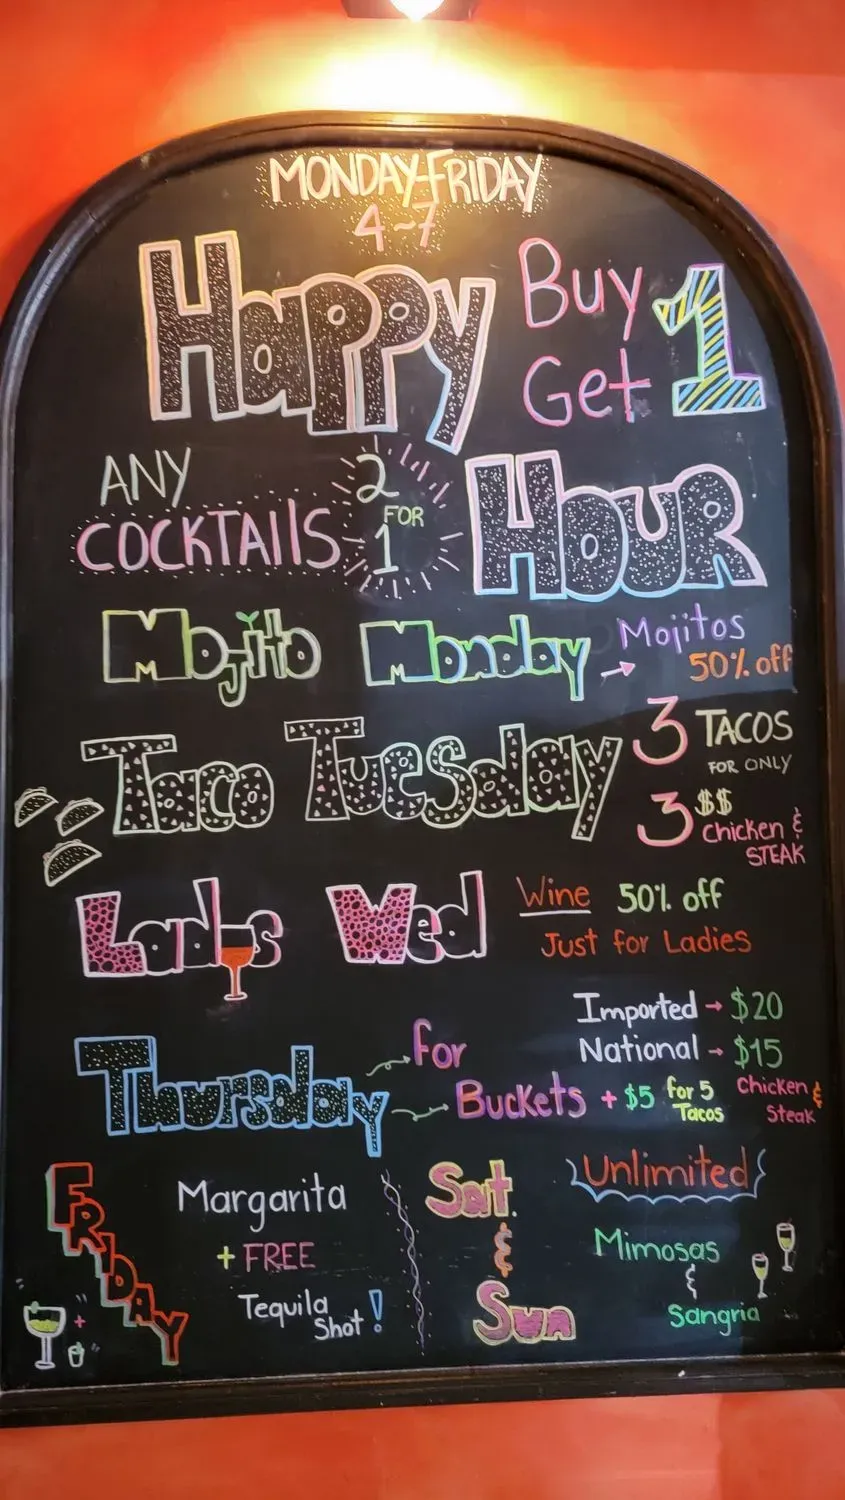 MONDAY-FRIDAY
4~7
Happy
Buy 1
Get
ANY
COCKTAIlS
2
FOR
1
HOUR
Mojito Monday → Mojitos
50% off
Taco Tuesday
3 TACOS
FOR ONLY
3 $$
chicken &
STEAK
Ladies Wed
Wine 50% off
Just for Ladies
Thursday
for
Buckets
Imported → $20
National → $15
+ $5 for 5
Tacos
Chicken &
Steak
FRIDAY
Margarita
+ FREE
Tequila
Shot!
Sat.
&
Sun
Unlimited
Mimosas
&
Sangria